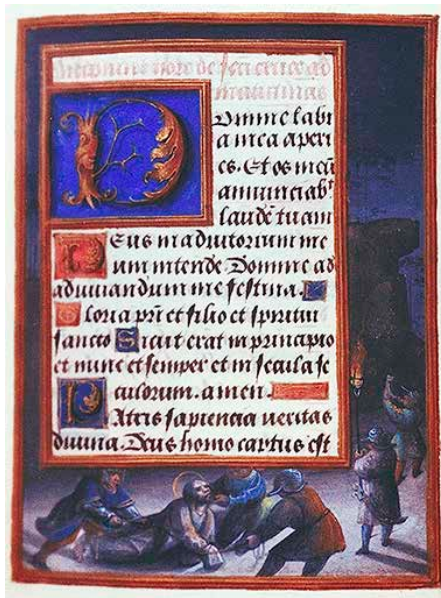 Incipiunt hore de sancta cruce ad
matutinas
Domine labi
a mea aperi
es. Et os meū
annunciabᵗ
laudē tuam
Deus in adiutorium me
um intende. Domine ad
adiuuandum me festina.
Gloria pr̄i et filio et spiritui
sancto Sicut erat in principio
et nunc et semper et in secula se
culorum. amen.
Patris sapiencia ueritas
diuina. Deus homo captus est